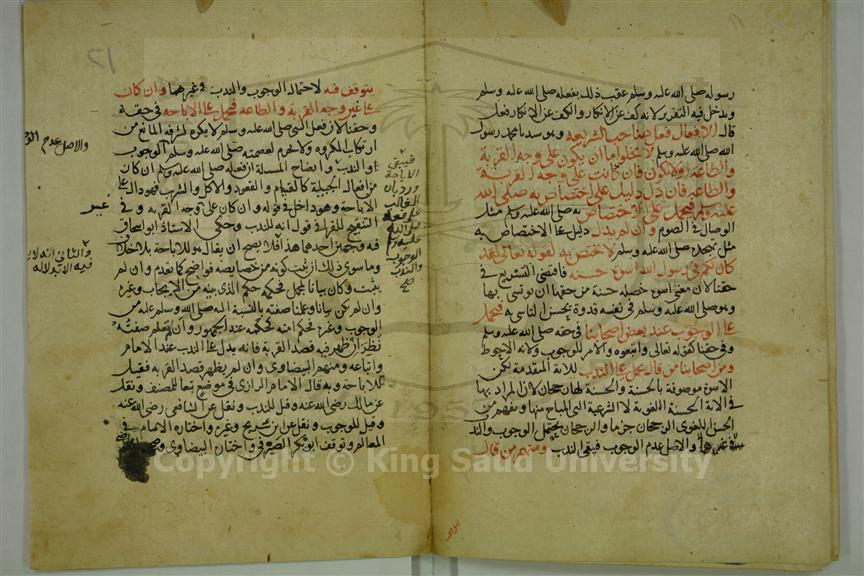 رسوله صلى الله عليه وسلم عقب ذلك بفعله صلى الله عليه وسلم
ويدخل فيه التقرير لانه كف عن الانكار والكف عن الانكار فعل
قال الافعال فعل صاحب الشريعة وهو سيدنا محمد رسول
الله صلى الله عليه وسلم لا يخلو اما ان يكون على وجه القربة
والطاعة ولا يكون فان كانت على وجه القربة
والطاعة فان دل دليل على اختصاص به صلى الله
عليه وسلم فيحمل على الاختصاص به صلى الله عليه وسلم مثل
الوصال في الصوم وان لم يدل دليل على الاختصاص به
مثل تهجده صلى الله عليه وسلم لا تختص به لقوله تعالى لقد
كان لكم في رسول الله اسوة حسنة فاقتضى التشريع في
حقنا لان معنى اسوة خصلة حسنة من حقها ان يوتسى بها
وهو صلى الله عليه وسلم في نفسه قدوة يحسن التاسي به فيحمل
على الوجوب عند بعض اصحابنا في حقه صلى الله عليه وسلم
وفي حقنا كقوله تعالى واتبعوه والامر للوجوب ولانه الاحوط
ومن اصحابنا من قال يحمل على الندب للاية المقدمة لكن
الاسوة موصوفة بالحسنة والحسنة لها رجحان لان المراد بها
في الاية الحسنة اللغوية لا الشرعية التي المباح منها ويفهم من
الحسن اللغوي الرجحان جزما والرجحان يحتمل الوجوب والندب
والاصل عدم الوجوب فيبقى الندب ومنهم من قال
١٢
يتوقف فيه لاحتماله الوجوب والندب وغيرهما وان كان
على غير وجه القربة والطاعة فيحمل على الاباحة في حقه
وحقنا لان فعل النبي صلى الله عليه وسلم لا يكره لشرفه المانع من
ارتكاب المكروه ولا محرم لعصمته صلى الله عليه وسلم الوجوب
والندب وايضاح المسئلة ان فعله صلى الله عليه وسلم ان كان
من افعاله الجبلية كالقيام والقعود والاكل والشرب فهو دال على
الاباحة وهو داخل في قوله وان كان على وجه القربة وفي
التنقيح للقرافي قول انه للندب وحكى الاستاذ ابو اسحاق
فيه وجهين احدهما هذا فلا يصح ان يقال هو للاباحة بلا خلاف
وما سوى ذلك ان ثبت كونه من خصايصه فواضح كما تقدم وان لم
يثبت وكان بيانا لمجمل فحكمه حكم الذي بينه من الايجاب وغيره
وان لم يكن بيانا وعلمنا صفته بالنسبة اليه صلى الله وسلم من
الوجوب وغيره فحكم امته كحكمه عند الجمهور وان لم تعلم صفته
نظر ان ظهر فيه قصد القربة فانه يدل على الندب عند الامام
واتباعه ومنهم البيضاوي وان لم يظهر قصد القربة فقيل
للاباحة وبه قال الامام الرازي في موضع تبعا للمصنف ونقل
عن مالك رضي الله عنه وقيل للندب ونقل عن الشافعي رضي الله عنه
وقيل للوجوب ونقل عن ابن سريج وغيره واختاره الامام في
المعالم وتوقف ابو بكر الصيرفي واختاره البيضاوي
فتبقى
الاباحة
الغالب
على فعله
صلى الله
عليه وسلم
الوجوب
والندب
صح
والاصل عدم
غير
والثاني انه لا
فيه الا بدلالة
Copyright © King Saud University
1957